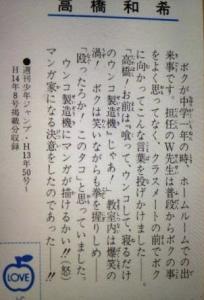 高橋和希
ボクが中学一年の時、ホームルームでの出
来事です。担任のW先生は普段からボクの事
をよく思ってなく、クラスメートの前でボク
に向かってこんな言葉を投げかけました。
「高橋、お前は"喰って、ウンコして、寝るだけ
のウンコ製造機"じゃあ！」教室内は爆笑の
渦！ボクは笑いながらも拳を握りしめ――
「殴ったろか！このタコ」と思っていました。
ウンコ製造機にマンガが描けるかい!!（怒）
マンガ家になる決意をしたのであった!!
●週刊少年ジャンプ・H13年50号～
H14年8号掲載分収録
LOVE